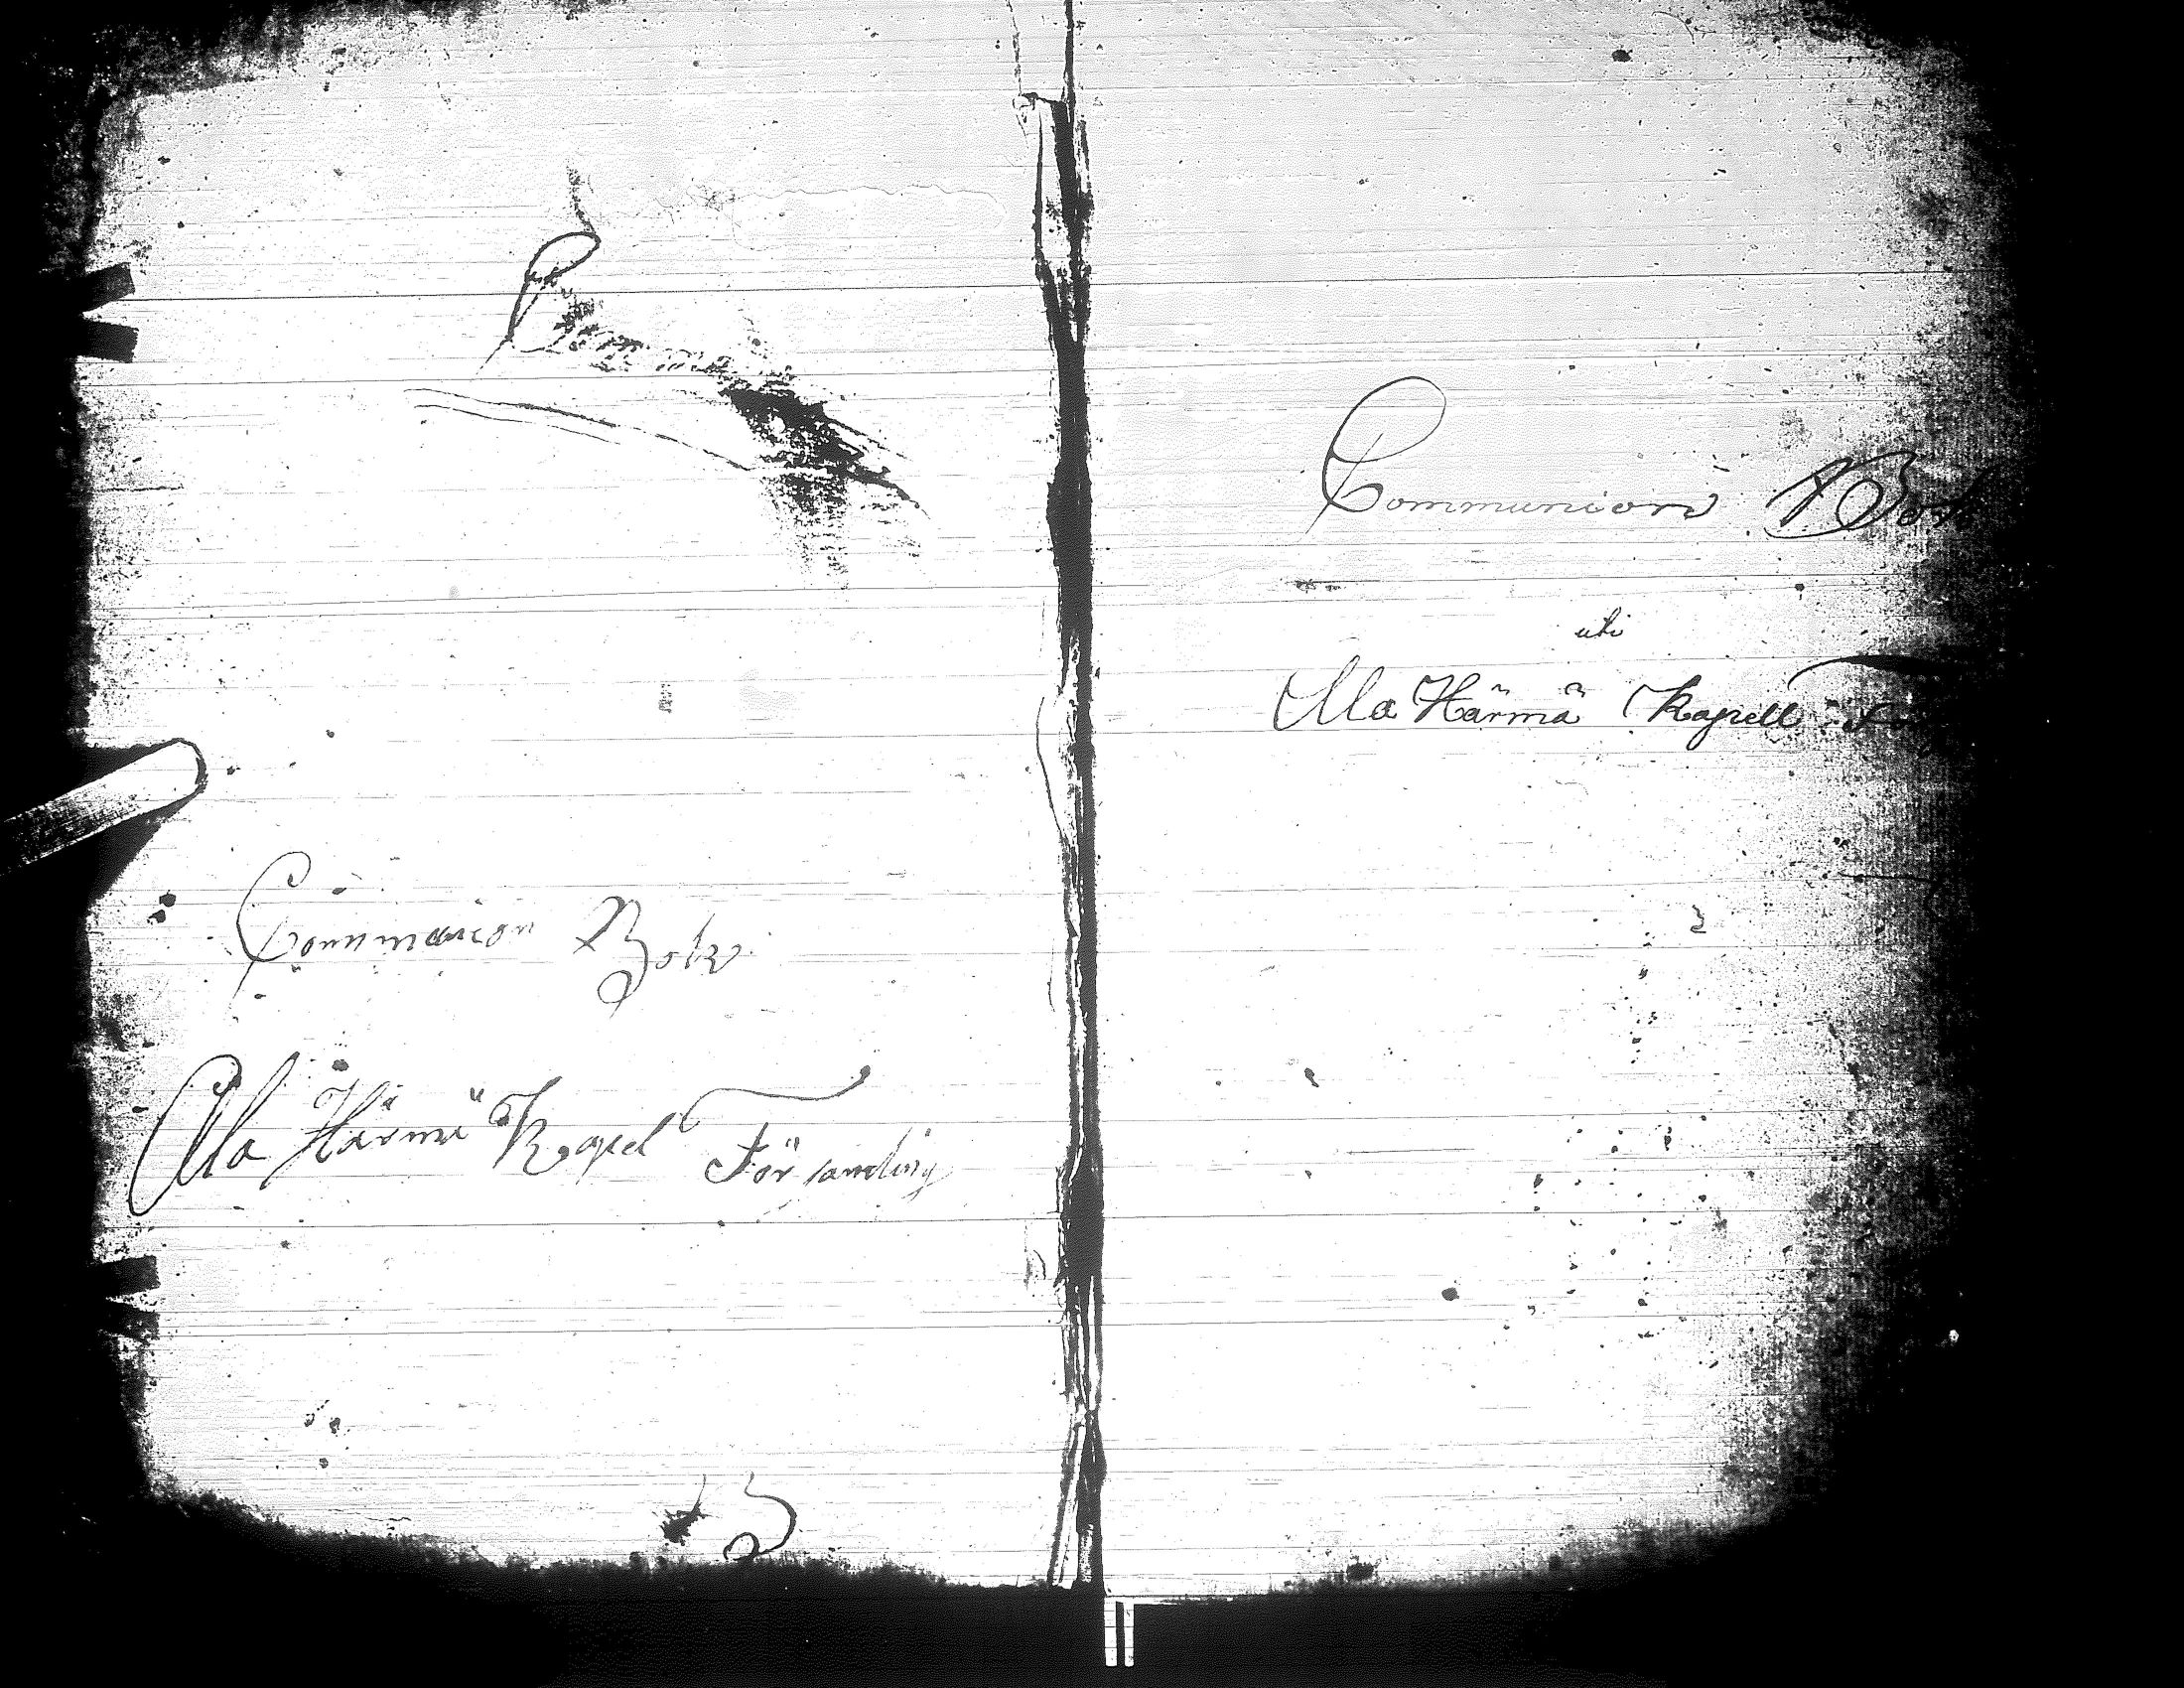 Communion Bok
Ala Härmä Kapel Församling
Communion Bok
uti
Ala Härmä Kapell